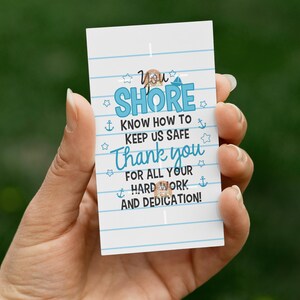 You
SHORE
KNOW HOW TO
KEEP US SAFE
Thank you
FOR ALL YOUR
HARD WORK
AND DEDICATION!